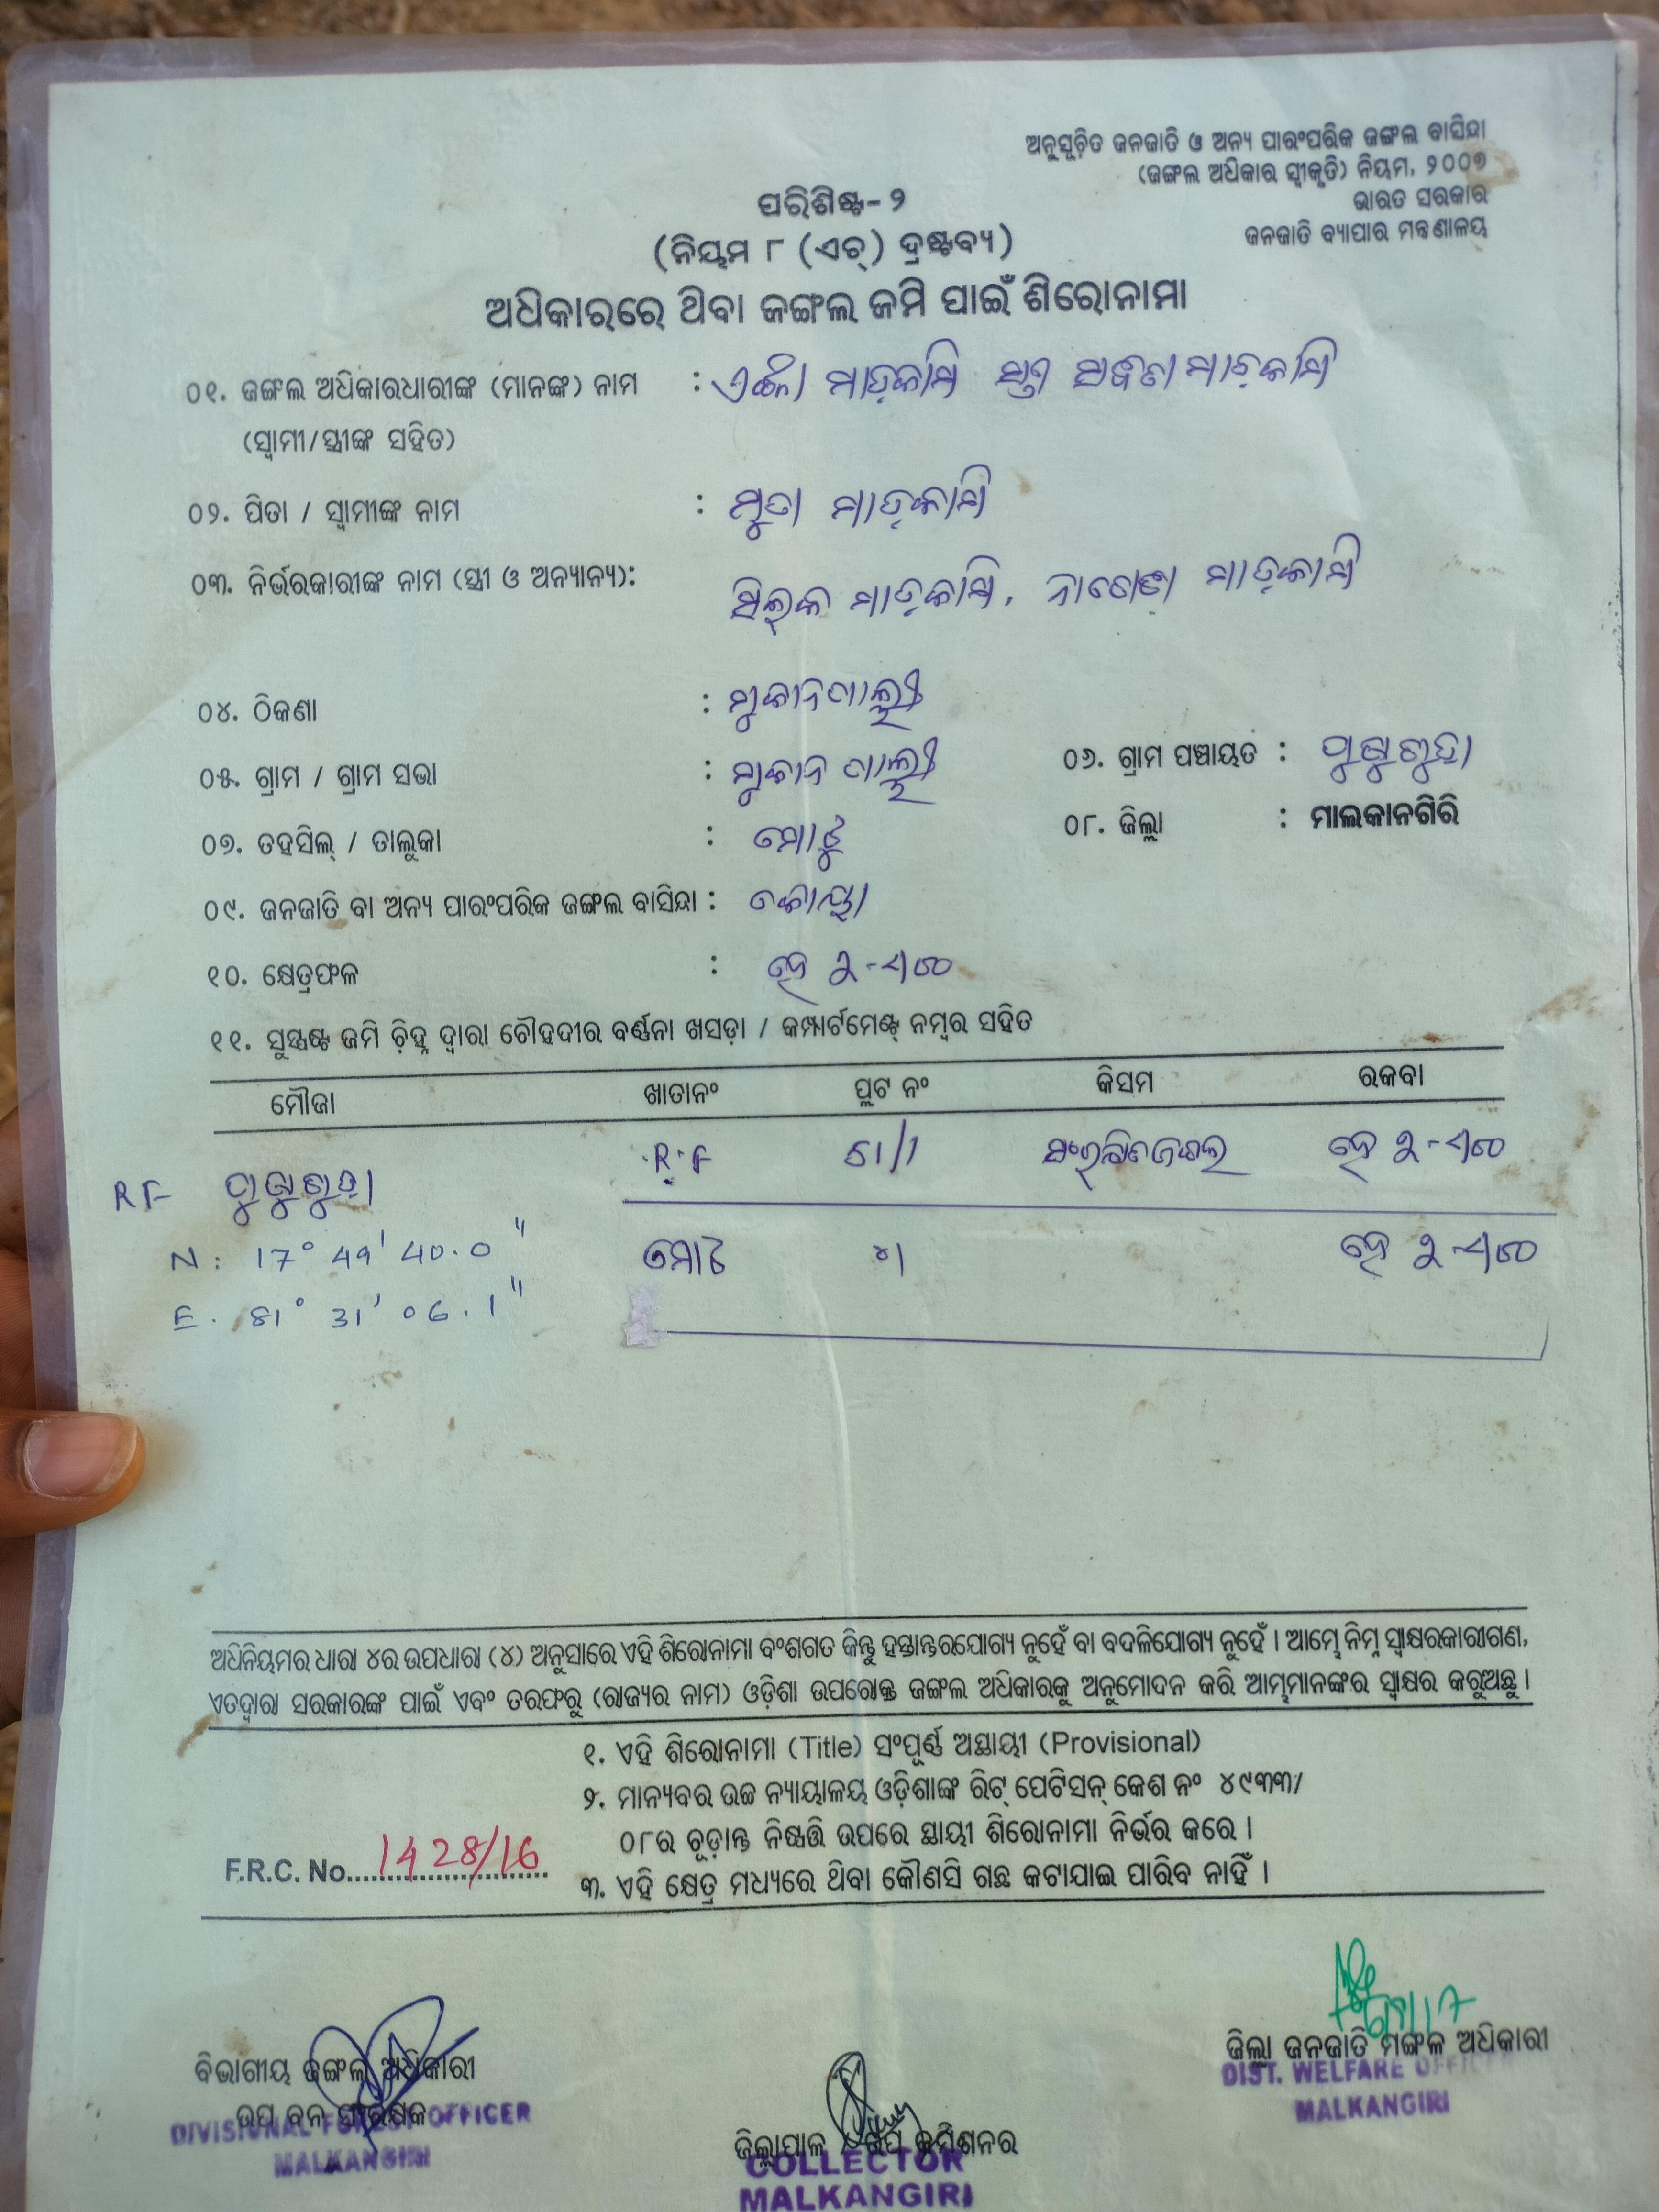 ଅନୁସୂଚିତ ଜନଜାତି ଓ ଅନ୍ୟ ପାରଂପରିକ ଜଙ୍ଗଲ ବାସିନ୍ଦା
(ଜଙ୍ଗଲ ଅଧିକାର ସ୍ୱୀକୃତି) ନିୟମ, ୨୦୦୭
ଭାରତ ସରକାର
ଜନଜାତି ବ୍ୟାପାର ମନ୍ତ୍ରଣାଳୟ
ପରିଶିଷ୍ଟ-୨
(ନିୟମ ୮ (ଏଚ୍) ଦ୍ରଷ୍ଟବ୍ୟ)
ଅଧିକାରରେ ଥିବା ଜଙ୍ଗଲ ଜମି ପାଇଁ ଶିରୋନାମା
୦୧. ଜଙ୍ଗଲ ଅଧିକାରଧାରୀଙ୍କ (ମାନଙ୍କ) ନାମ : ମାଡ଼କାମି ମାଡ଼କାମି
(ସ୍ୱାମୀ/ସ୍ତ୍ରୀଙ୍କ ସହିତ)
୦୨. ପିତା / ସ୍ୱାମୀଙ୍କ ନାମ : ମୁତା ମାଡ଼କାମି
୦୩. ନିର୍ଭରକାରୀଙ୍କ ନାମ (ସ୍ତ୍ରୀ ଓ ଅନ୍ୟାନ୍ୟ): ମାଡ଼କାମି, ମାଡ଼କାମି
୦୪. ଠିକଣା :
୦୫. ଗ୍ରାମ / ଗ୍ରାମ ସଭା :
୦୬. ଗ୍ରାମ ପଞ୍ଚାୟତ :
୦୭. ତହସିଲ୍ / ତାଲୁକା : ମୋଟୁ
୦୮. ଜିଲ୍ଲା : ମାଲକାନଗିରି
୦୯. ଜନଜାତି ବା ଅନ୍ୟ ପାରଂପରିକ ଜଙ୍ଗଲ ବାସିନ୍ଦା : କୋୟା
୧୦. କ୍ଷେତ୍ରଫଳ : ହେ
୧୧. ସୁସ୍ପଷ୍ଟ ଜମି ଚିହ୍ନ ଦ୍ୱାରା ଚୌହଦୀର ବର୍ଣ୍ଣନା ଖସଡ଼ା / କମ୍ପାର୍ଟମେଣ୍ଟ୍ ନମ୍ବର ସହିତ
ମୌଜା ଖାତାନଂ ପ୍ଲଟ ନଂ କିସମ ରକବା
R.F 51/1 ସଂରକ୍ଷିତଜଙ୍ଗଲ ହେ
RF
N: 17° 49' 40.0" ମୋଟ ୪। ହେ
E. 81° 31' 06.1"
ଅଧିନିୟମର ଧାରା ୪ର ଉପଧାରା (୪) ଅନୁସାରେ ଏହି ଶିରୋନାମା ବଂଶଗତ କିନ୍ତୁ ହସ୍ତାନ୍ତରଯୋଗ୍ୟ ନୁହେଁ ବା ବଦଳିଯୋଗ୍ୟ ନୁହେଁ । ଆମ୍ଭେ ନିମ୍ନ ସ୍ୱାକ୍ଷରକାରୀଗଣ,
ଏତଦ୍ୱାରା ସରକାରଙ୍କ ପାଇଁ ଏବଂ ତରଫରୁ (ରାଜ୍ୟର ନାମ) ଓଡ଼ିଶା ଉପରୋକ୍ତ ଜଙ୍ଗଲ ଅଧିକାରକୁ ଅନୁମୋଦନ କରି ଆମ୍ଭମାନଙ୍କର ସ୍ୱାକ୍ଷର କରୁଅଛୁ ।
୧. ଏହି ଶିରୋନାମା (Title) ସଂପୂର୍ଣ୍ଣ ଅସ୍ଥାୟୀ (Provisional)
୨. ମାନ୍ୟବର ଉଚ୍ଚ ନ୍ୟାୟାଳୟ ଓଡ଼ିଶାଙ୍କ ରିଟ୍ ପେଟିସନ୍ କେଶ ନଂ ୪୯୩୩/
୦୮ର ଚୂଡ଼ାନ୍ତ ନିଷ୍ପତ୍ତି ଉପରେ ସ୍ଥାୟୀ ଶିରୋନାମା ନିର୍ଭର କରେ ।
F.R.C. No. 1428/16
୩. ଏହି କ୍ଷେତ୍ର ମଧ୍ୟରେ ଥିବା କୌଣସି ଗଛ କଟାଯାଇ ପାରିବ ନାହିଁ ।
ଜିଲ୍ଲା ଜନଜାତି ମଙ୍ଗଳ ଅଧିକାରୀ
DIST. WELFARE OFFICER
MALKANGIRI
ବିଭାଗୀୟ ଜଙ୍ଗଲ ଅଧିକାରୀ
ଉପ ବନ ସଂରକ୍ଷକ
DIVISIONAL FOREST OFFICER
MALKANGIRI
ଜିଲ୍ଲାପାଳ ଉପ କମିଶନର
COLLECTOR
MALKANGIRI